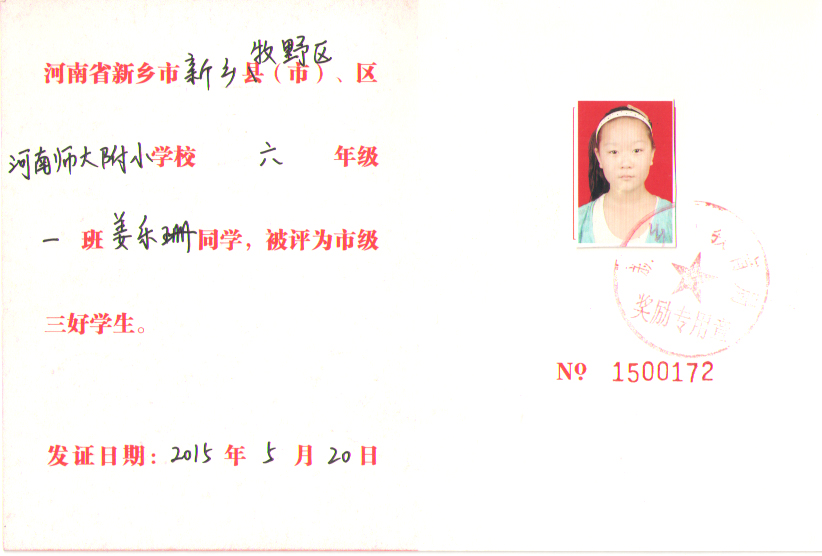 河南省新乡市新乡县(市)、区
牧野区
河南师大附小学校 六 年级
一 班姜乐珊同学,被评为市级
三好学生。
发证日期:2015 年 5 月 20 日
教育局
奖励专用章
Nº 1500172